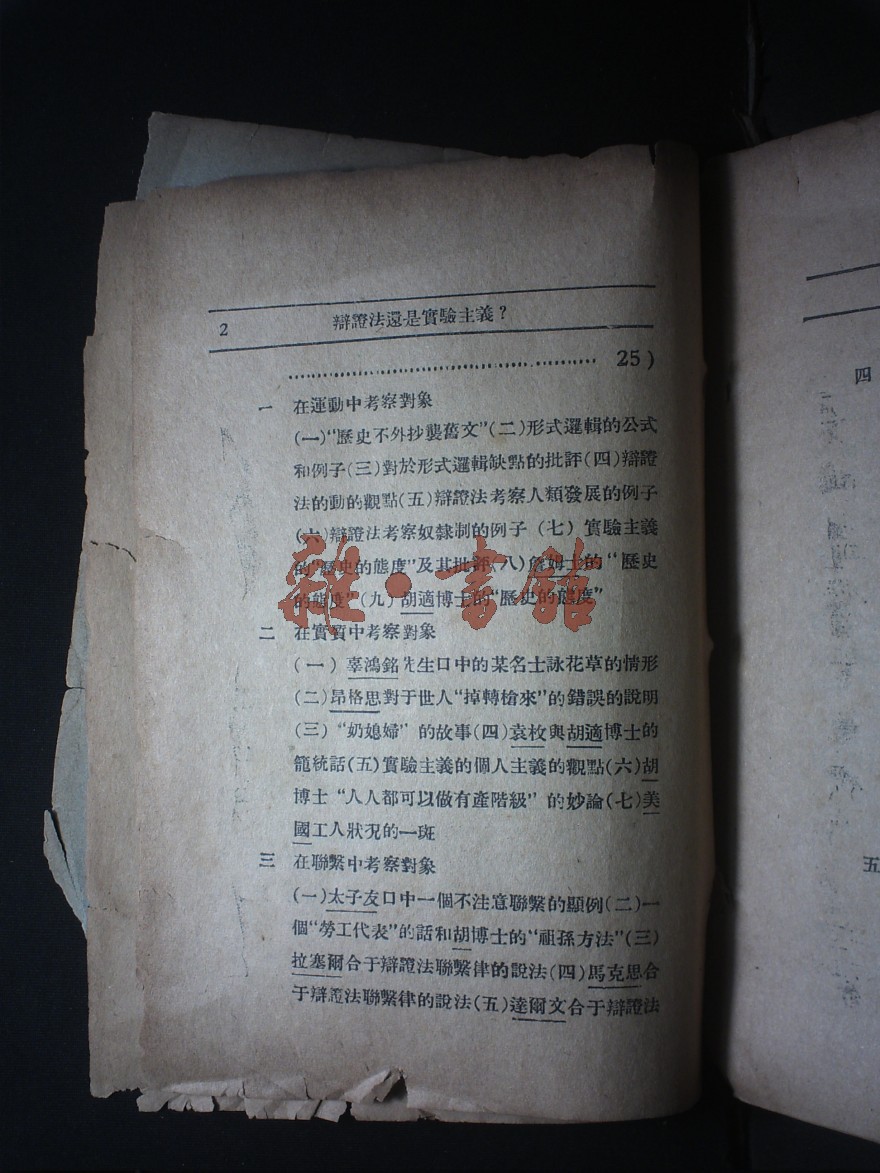 2 辯證法還是實驗主義？
25)
一 在運動中考察對象
(一)“歷史不外抄襲舊文”(二)形式邏輯的公式
和例子(三)對於形式邏輯缺點的批評(四)辯證
法的動的觀點(五)辯證法考察人類發展的例子
(六)辯證法考察奴隸制的例子(七)實驗主義
的“歷史的態度”及其批評(八)詹姆士的“歷史
的態度”(九)胡適博士的“歷史的態度”
二 在實質中考察對象
(一)辜鴻銘先生口中的某名士詠花草的情形
(二)昂格思對于世人“掉轉槍來”的錯誤的說明
(三)“奶媳婦”的故事(四)袁枚與胡適博士的
籠統話(五)實驗主義的個人主義的觀點(六)胡
博士“人人都可以做有產階級”的妙論(七)美
國工人狀況的一斑
三 在聯繫中考察對象
(一)太子友口中一個不注意聯繫的顯例(二)一
個“勞工代表”的話和胡博士的“祖孫方法”(三)
拉塞爾合于辯證法聯繫律的說法(四)馬克思合
于辯證法聯繫律的說法(五)達爾文合于辯證法
四
五
雜·書館